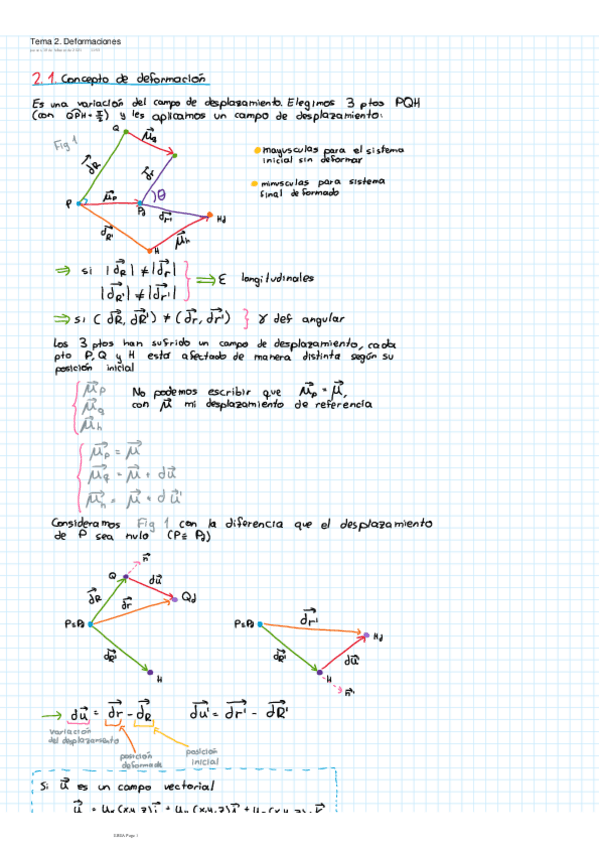 Tema 2. Deformaciones
2.1. Concepto de deformación
Es una variación del campo de desplazamiento. Elegimos 3 ptos PQH
(con QPH = π/2) y les aplicamos un campo de desplazamiento:
Fig 1
Q
μq
dR
dr
P
μp
Pd
θ
dr'
Hd
dR'
μh
H
mayusculas para el sistema
inicial sin deformar
minusculas para sistema
final deformado
⇒ si |dR| ≠ |dr|
|dR'| ≠ |dr'|
⇒ ε longitudinales
⇒ si (dR, dR') ≠ (dr, dr') } γ def angular
Los 3 ptos han sufrido un campo de desplazamiento, cada
pto P, Q y H esta afectado de manera distinta según su
posición inicial
μp
μq
μh
No podemos escribir que μp = μ,
con μ mi desplazamiento de referencia
μp = μ
μq = μ + du
μh = μ + du'
Consideramos Fig 1 con la diferencia que el desplazamiento
de P sea nulo (P≡Pd)
Q
n
du
dR
dr
Qd
P≡Pd
dR'
H
P≡Pd
dr'
Hd
dR'
du
H
n
→ du = dr - dR
du' = dr' - dR'
variación
del desplazamiento
posición
deformada
posición
inicial
Si u es un campo vectorial